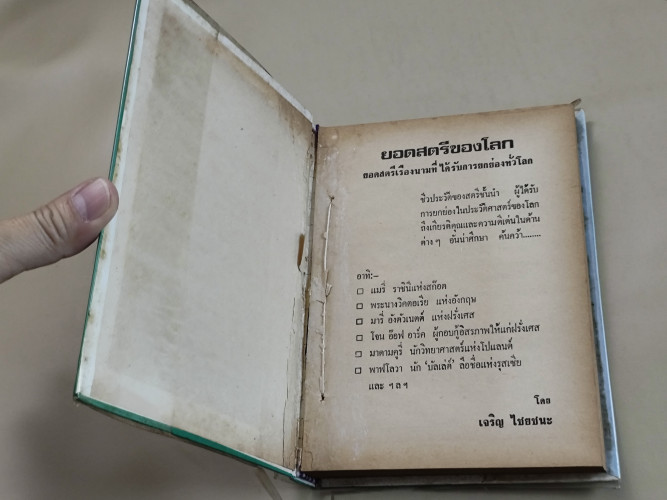 ยอดสตรีของโลก
ยอดสตรีเรืองนามที่ได้รับการยกย่องทั่วโลก
ชีวประวัติของสตรีชั้นนำ ผู้ได้รับ
การยกย่องในประวัติศาสตร์ของโลก
ถึงเกียรติคุณและความดีเด่นในด้าน
ต่าง ๆ อันน่าศึกษา ค้นคว้า........
อาทิ:–
□ แมรี่ ราชินีแห่งสก๊อต
□ พระนางวิคตอเรีย แห่งอังกฤษ
□ มารี อังตัวเนตต์ แห่งฝรั่งเศส
□ โจน อ๊อฟ อาร์ค ผู้กอบกู้อิสรภาพให้แก่ฝรั่งเศส
□ มาดามคูรี่ นักวิทยาศาสตร์แห่งโปแลนด์
□ พาฟโลวา นัก 'บัลเล่ต์' ลือชื่อแห่งรุสเซีย
และ ฯลฯ
โดย
เจริญ ไชยชนะ